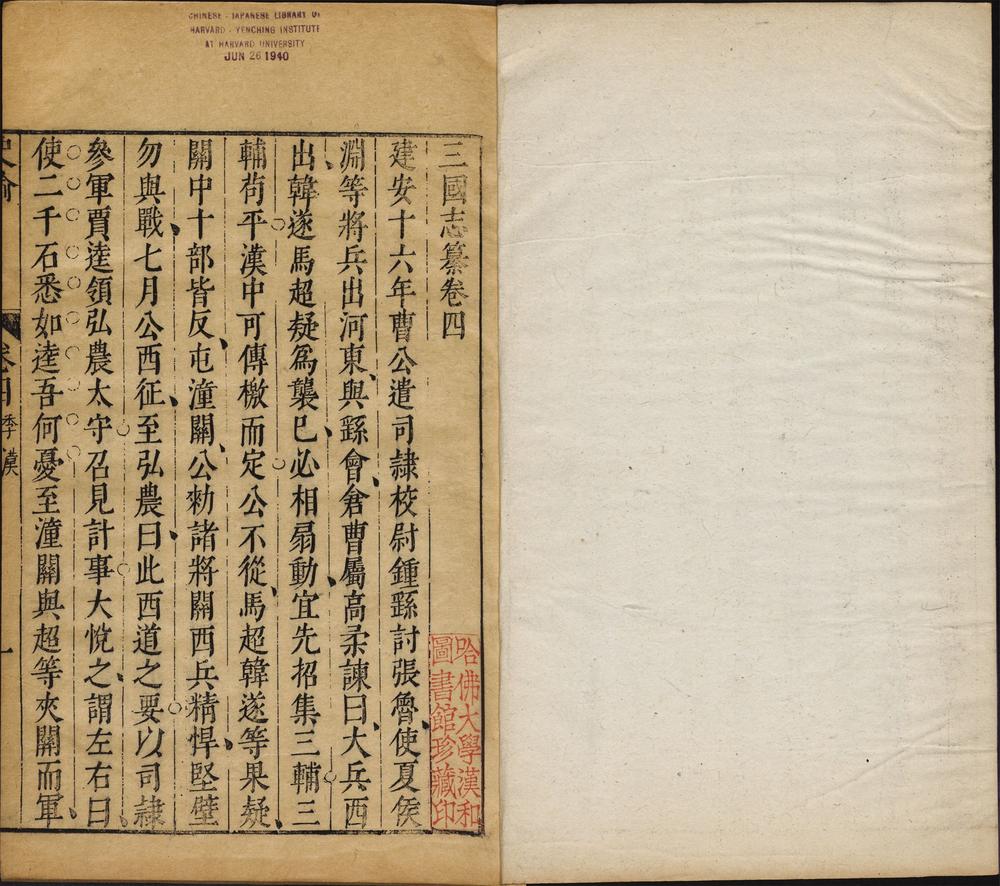 CHINESE - JAPANESE LIBRARY OF
HARVARD - YENCHING INSTITUTE
AT HARVARD UNIVERSITY
JUN 26 1940
三國志纂卷四
建安十六年曹公遣司隷校尉鍾繇討張魯、使夏侯
淵等將兵出河東、與繇會、倉曹屬高柔諫曰、大兵西
出、韓遂馬超疑爲襲已、必相扇動、宜先招集三輔三
輔茍平漢中可傳檄而定公不從、馬超韓遂等果疑、
關中十部皆反、屯潼關、公勑諸將關西兵精悍、堅壁
勿與戰、七月公西征、至弘農曰、此西道之要以司隷
參軍賈逵領弘農太守召見計事大悅之、謂左右曰、
使二千石悉如逵吾何憂至潼關與超等夾關而軍、
卷四
季漢
一
哈佛大學漢和
圖書館珍藏印